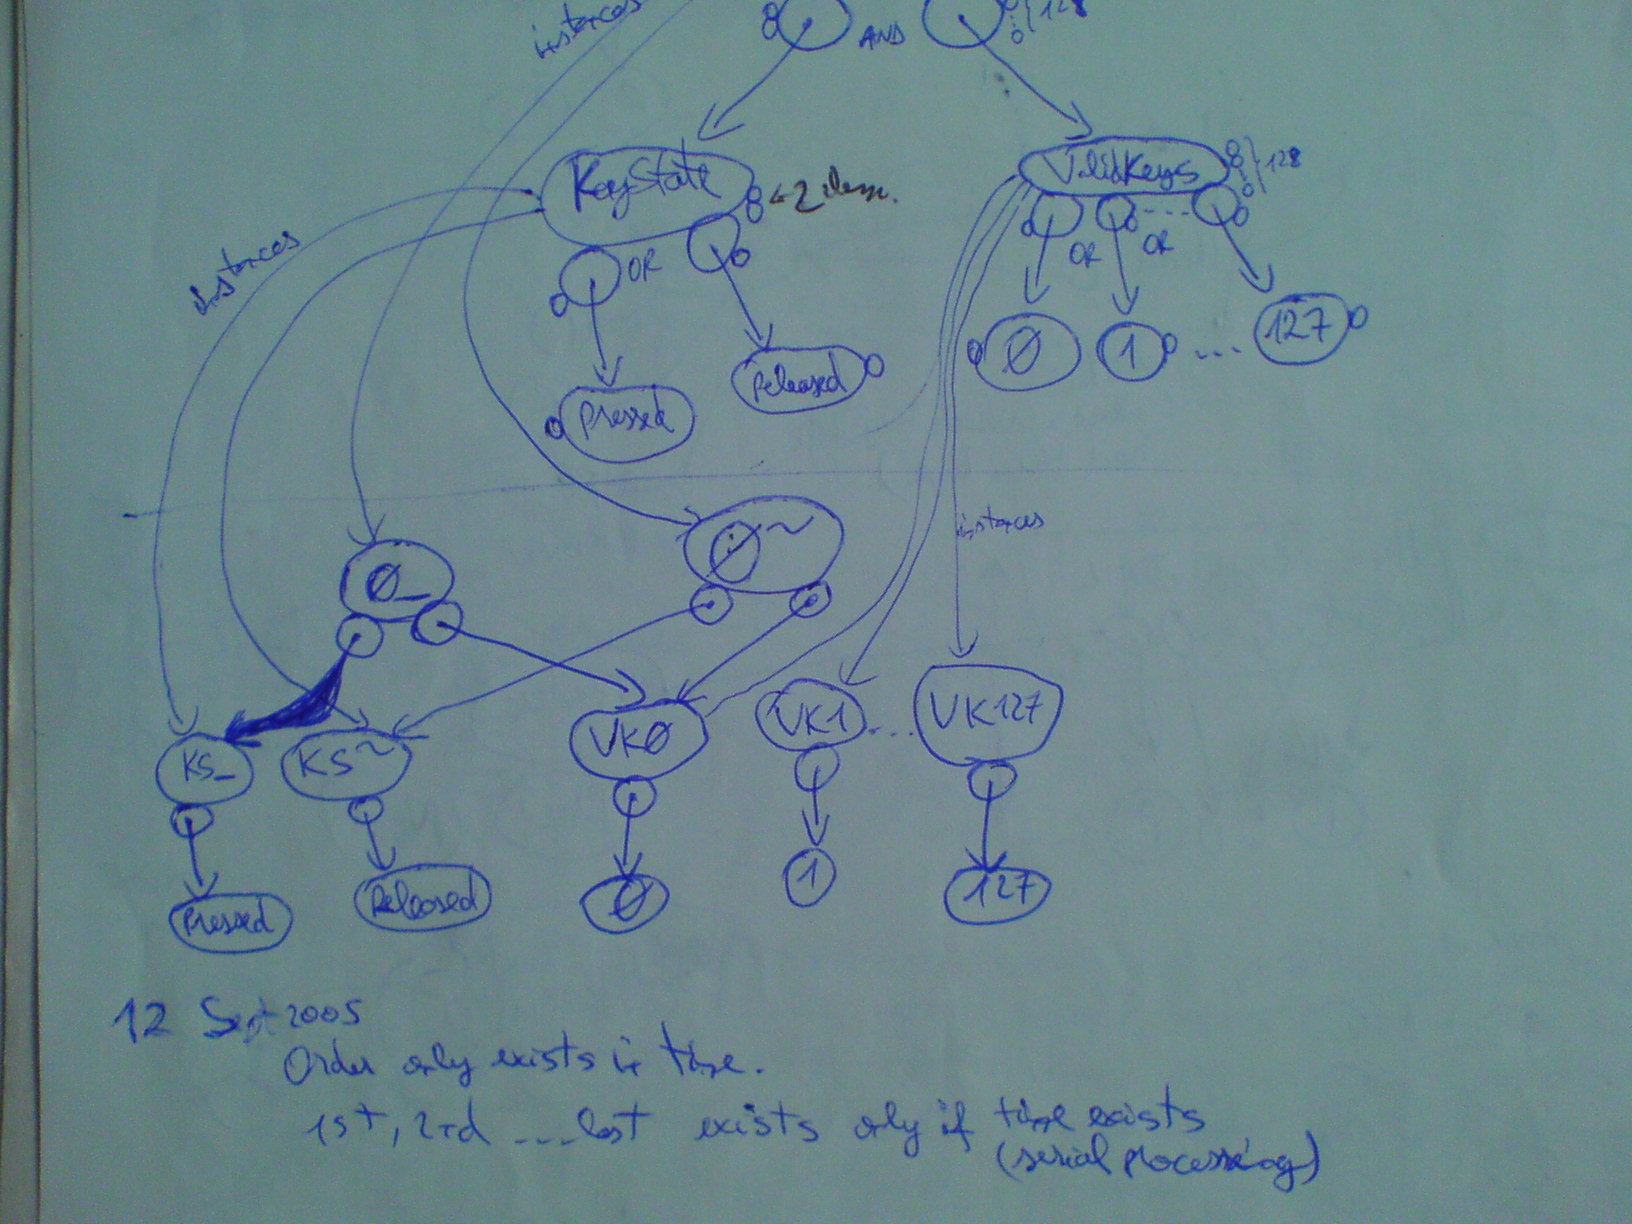 instances
AND
128
KeyState
2 elem.
ValidKeys
128
instances
OR
OR
OR
Pressed
Released
Ø
1
...
127
instances
Ø_
Ø~
KS_
KS~
VKØ
VK1
...
VK127
Pressed
Released
Ø
1
127
12 Sept 2005
Order only exists in time.
1st, 2nd ... last exists only if time exists
(serial processing)